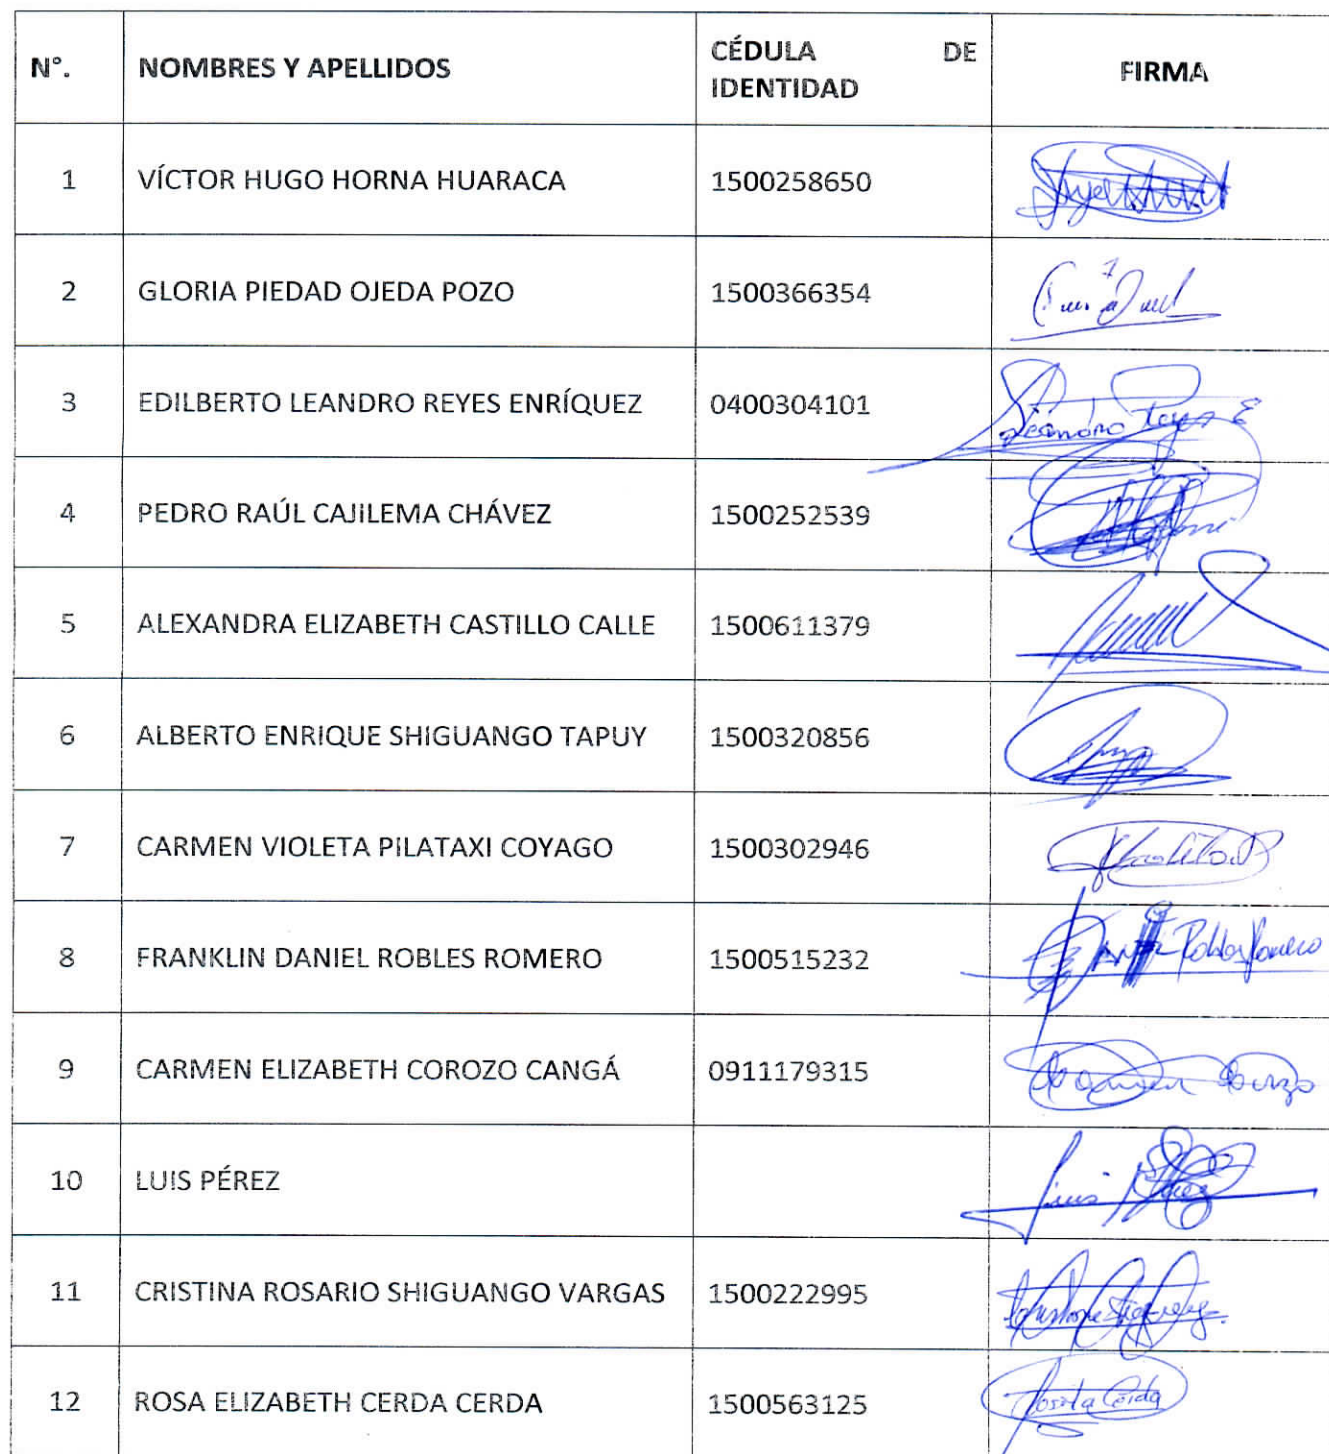 N°. NOMBRES Y APELLIDOS CÉDULA DE IDENTIDAD FIRMA
1 VÍCTOR HUGO HORNA HUARACA 1500258650
2 GLORIA PIEDAD OJEDA POZO 1500366354
3 EDILBERTO LEANDRO REYES ENRÍQUEZ 0400304101 Leandro Reyes E
4 PEDRO RAÚL CAJILEMA CHÁVEZ 1500252539
5 ALEXANDRA ELIZABETH CASTILLO CALLE 1500611379
6 ALBERTO ENRIQUE SHIGUANGO TAPUY 1500320856
7 CARMEN VIOLETA PILATAXI COYAGO 1500302946
8 FRANKLIN DANIEL ROBLES ROMERO 1500515232 Robles Romero
9 CARMEN ELIZABETH COROZO CANGÁ 0911179315 Carmen Corozo
10 LUIS PÉREZ Luis
11 CRISTINA ROSARIO SHIGUANGO VARGAS 1500222995
12 ROSA ELIZABETH CERDA CERDA 1500563125 Rosita Cerda